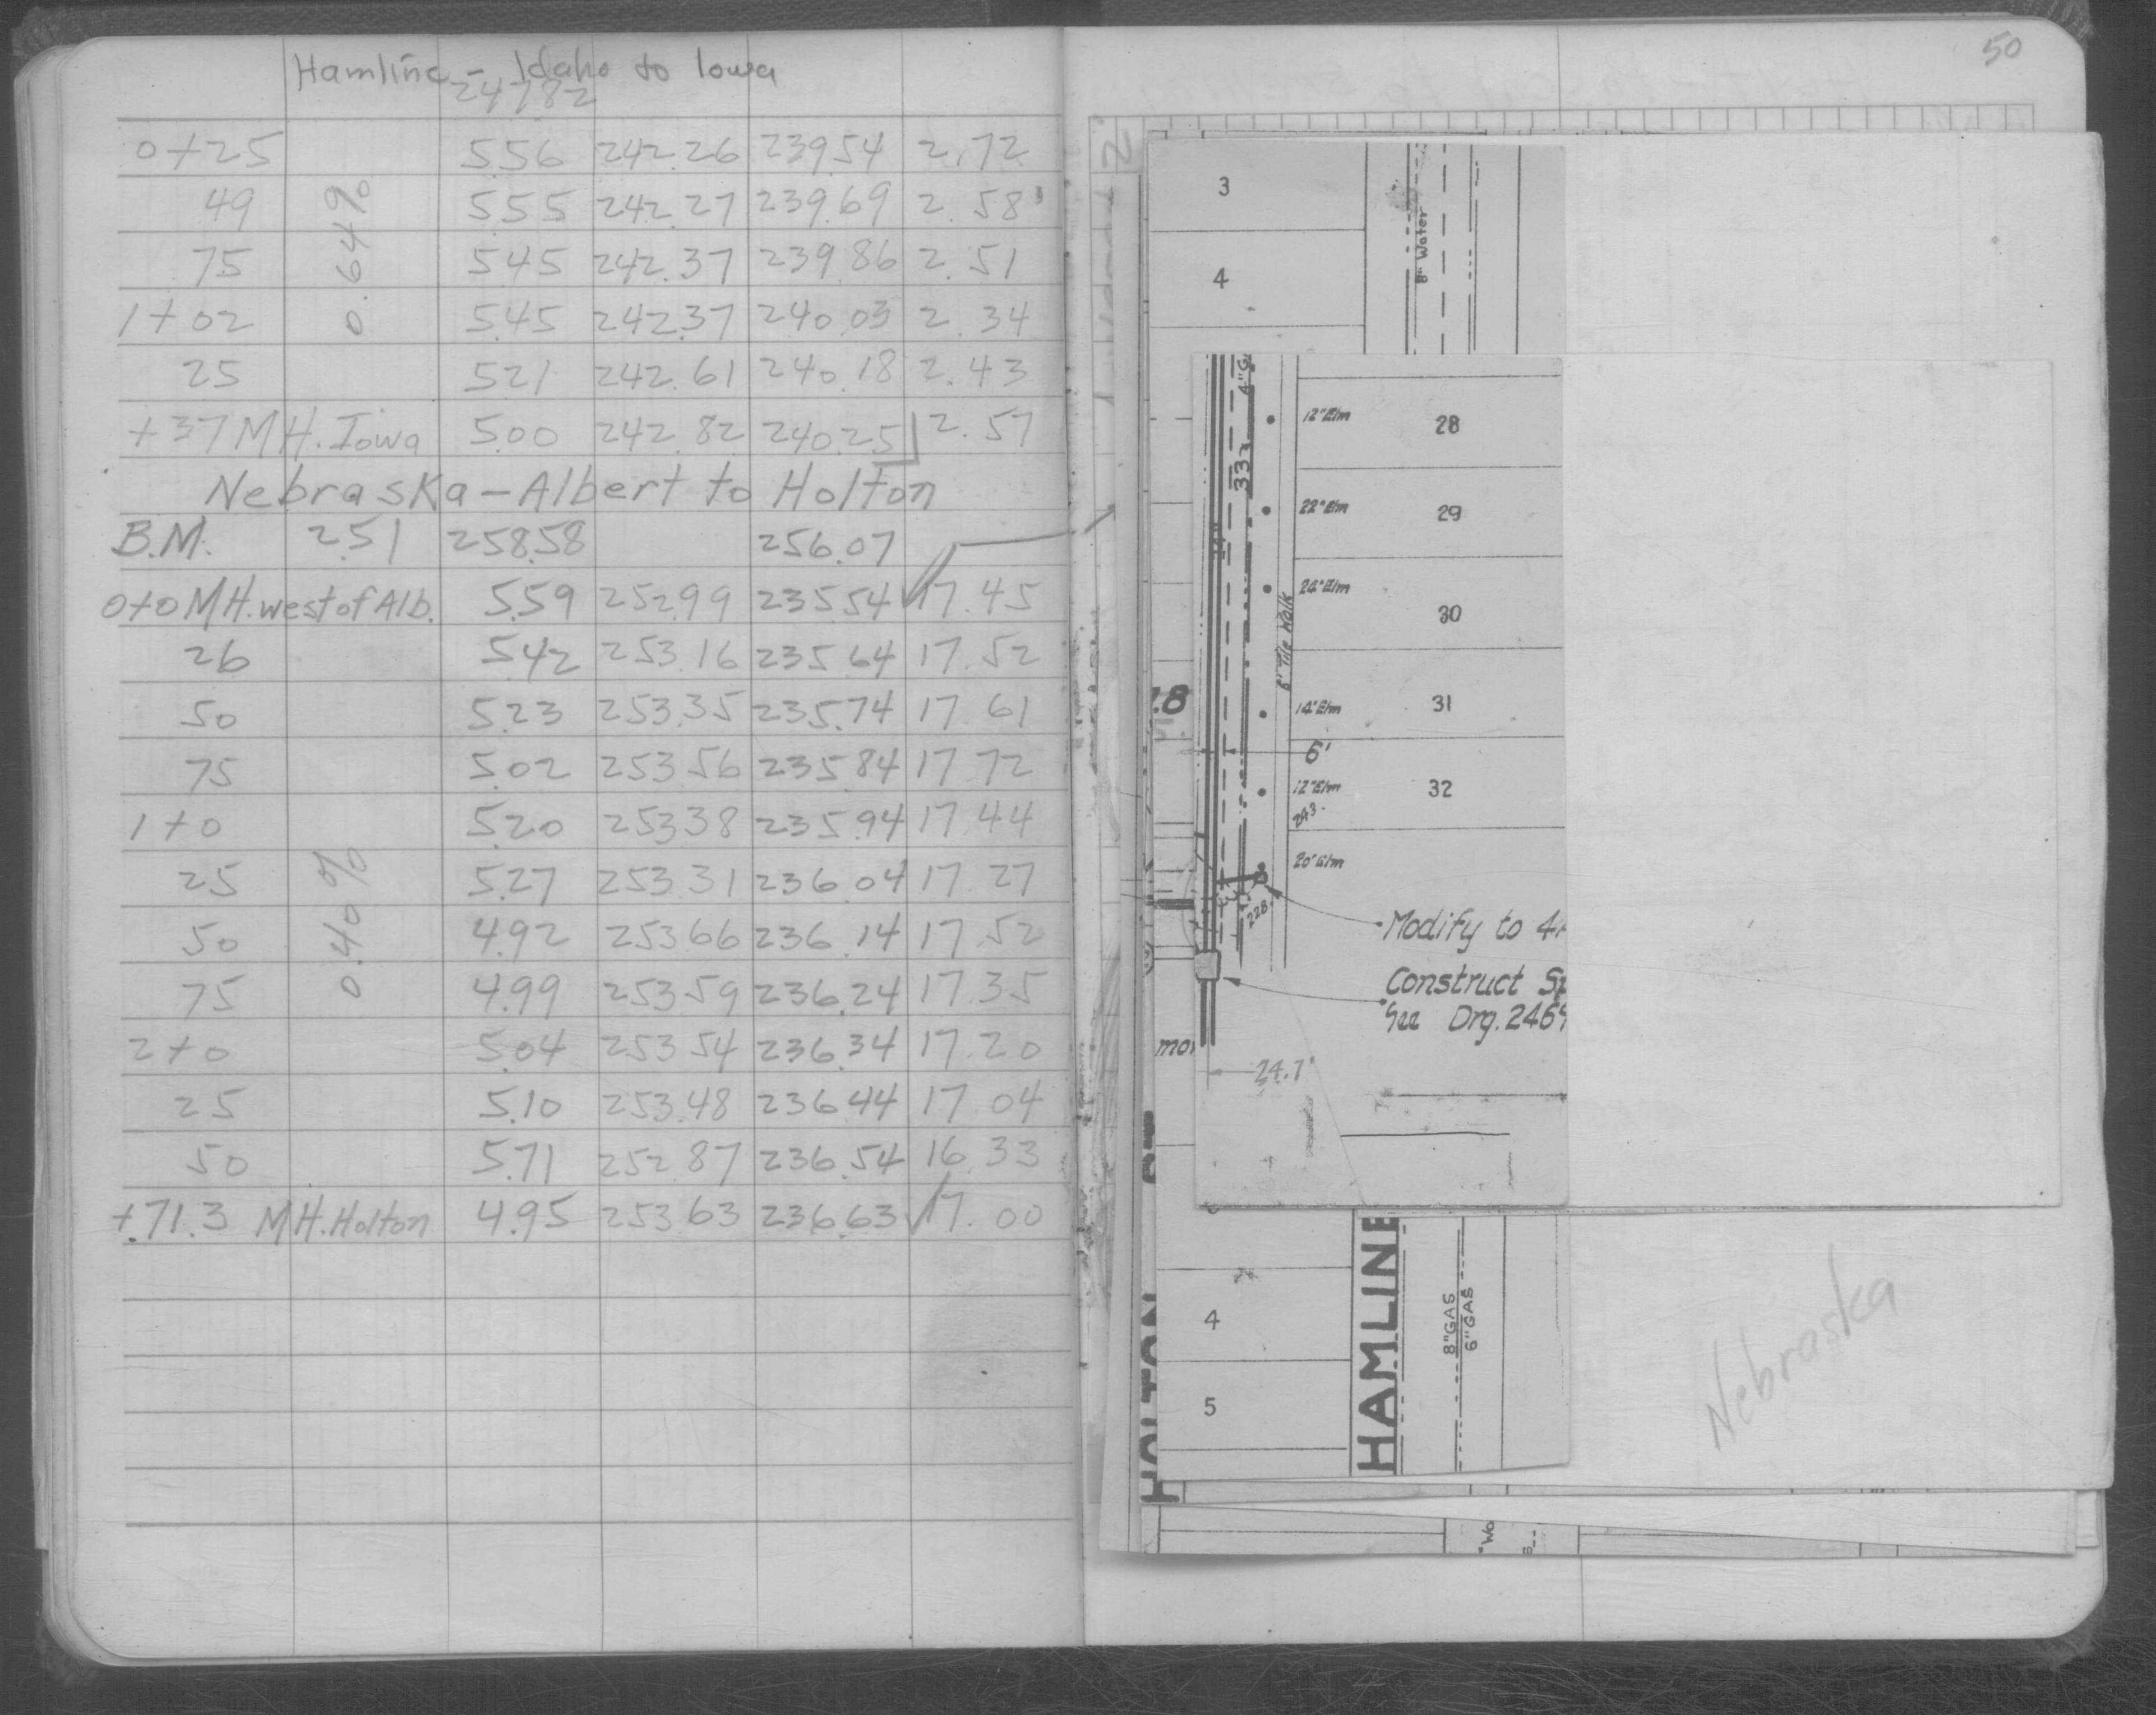 Hamline - Idaho to Iowa
247.82
0+25 5.56 242.26 239.54 2.72
49 5.55 242.27 239.69 2.58
75 5.45 242.37 239.86 2.51
1+02 5.45 242.37 240.03 2.34
25 5.21 242.61 240.18 2.43
+37 M.H. Iowa 5.00 242.82 240.25 2.57
0.64%
Nebraska - Albert to Holton
B.M. 2.51 258.58 256.07
0+0 M.H. west of Alb. 5.59 252.99 235.54 17.45
26 5.42 253.16 235.64 17.52
50 5.23 253.35 235.74 17.61
75 5.02 253.56 235.84 17.72
1+0 5.20 253.38 235.94 17.44
25 5.27 253.31 236.04 17.27
50 4.92 253.66 236.14 17.52
75 4.99 253.59 236.24 17.35
2+0 5.04 253.54 236.34 17.20
25 5.10 253.48 236.44 17.04
50 5.71 252.87 236.54 16.33
+71.3 M.H. Holton 4.95 253.63 236.63 17.00
0.40%
50
3
4
8" Water
4"G
33
12" Elm
28
22" Elm
29
24" Elm
30
6' Tile Walk
14" Elm
31
6'
12" Elm
32
243.
20" Elm
228.
Modify to 4
Construct S
See Drg. 246
24.7'
HOLTON
HAMLINE
8" GAS
6" GAS
4
5
Nebraska